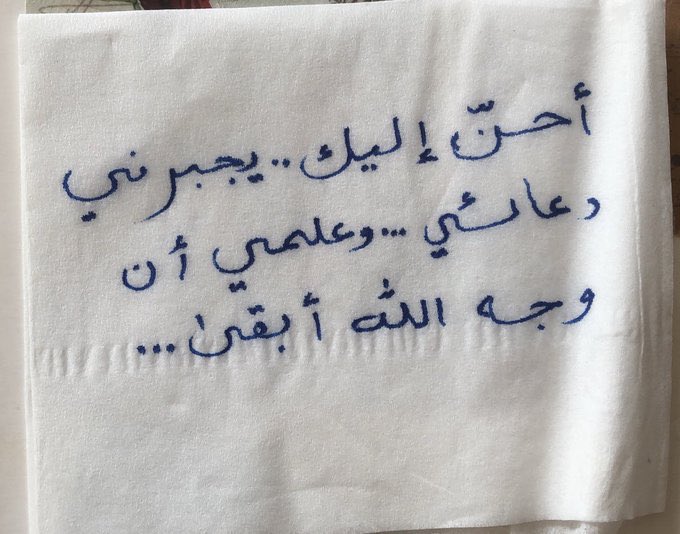 أحنّ إليك..يجبرني
دعائي...وعلمي أن
وجه الله أبقىٰ...